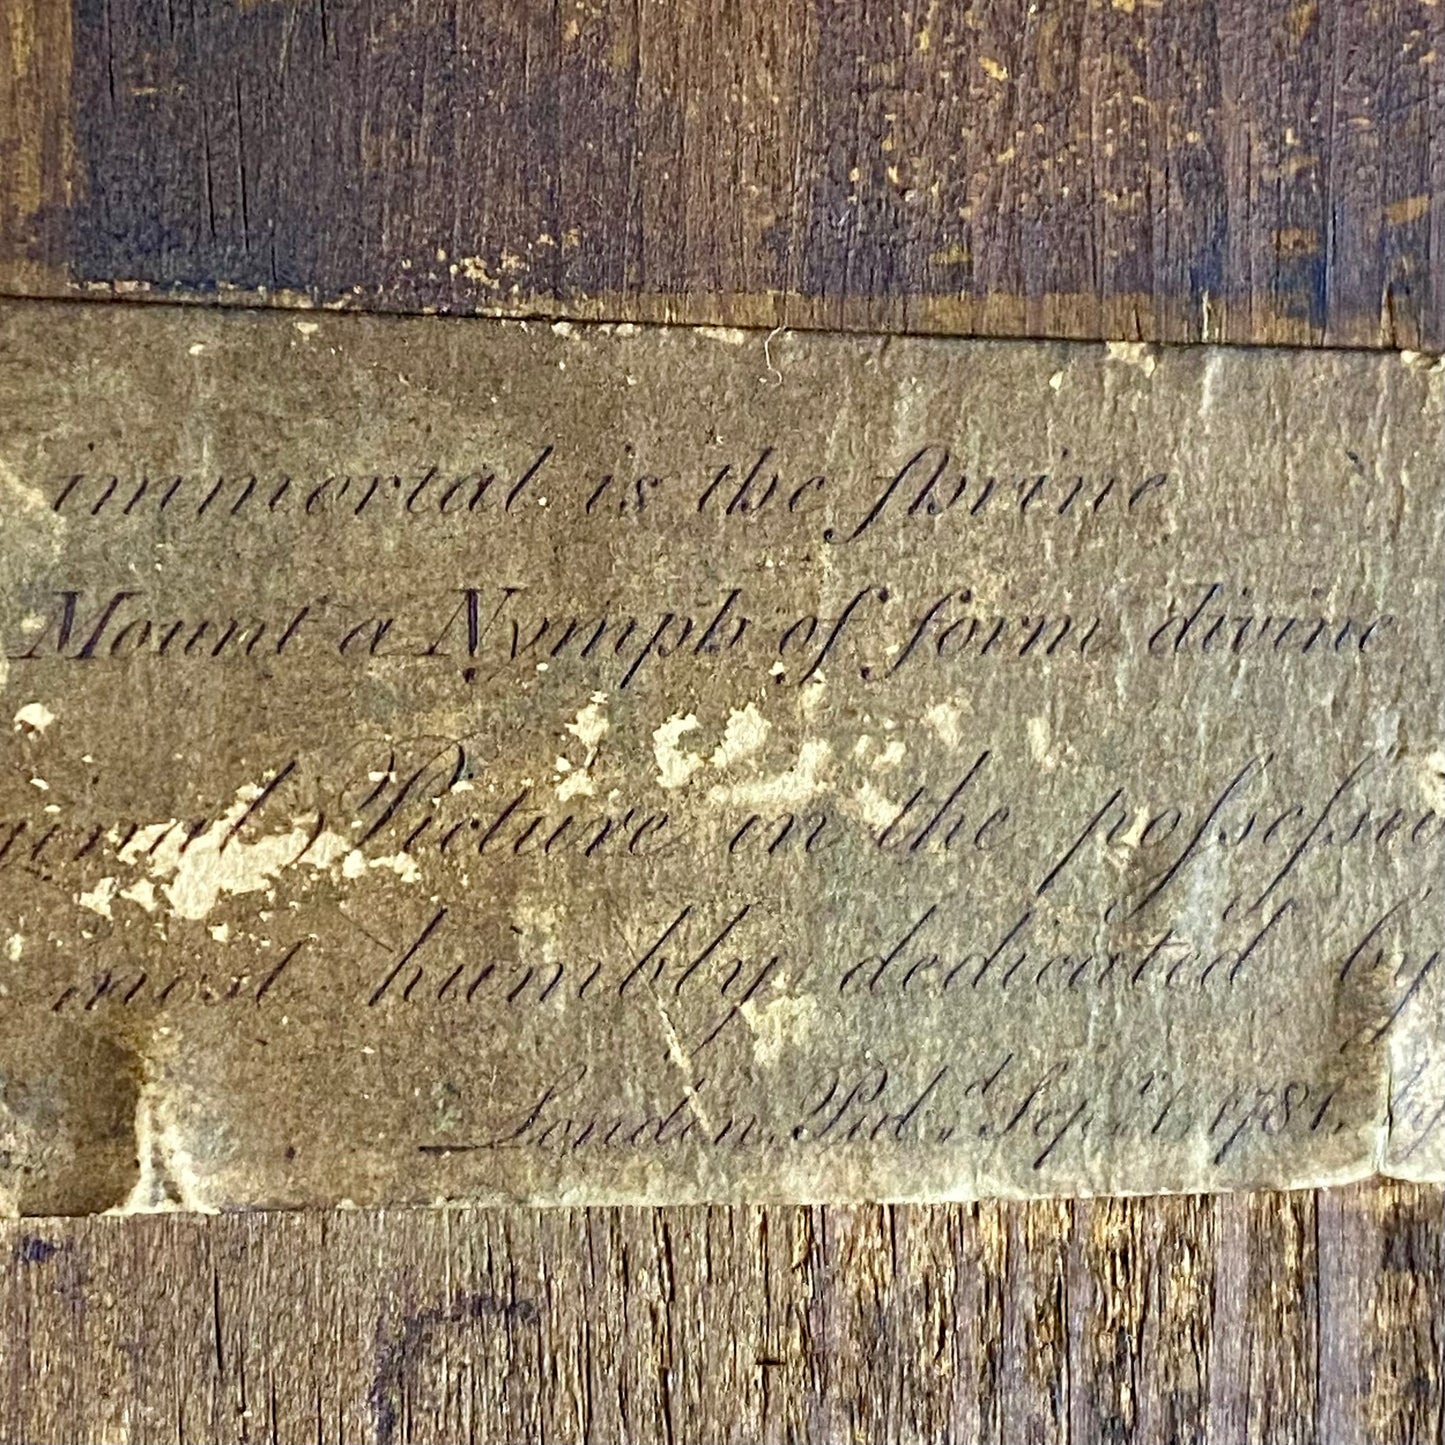 immortal is the ſhrine
Mount a Nymph of form divine
ginal Picture in the poſseſsio
most humbly dedicated by
London, Pub.d Sep.r 1 1781. by